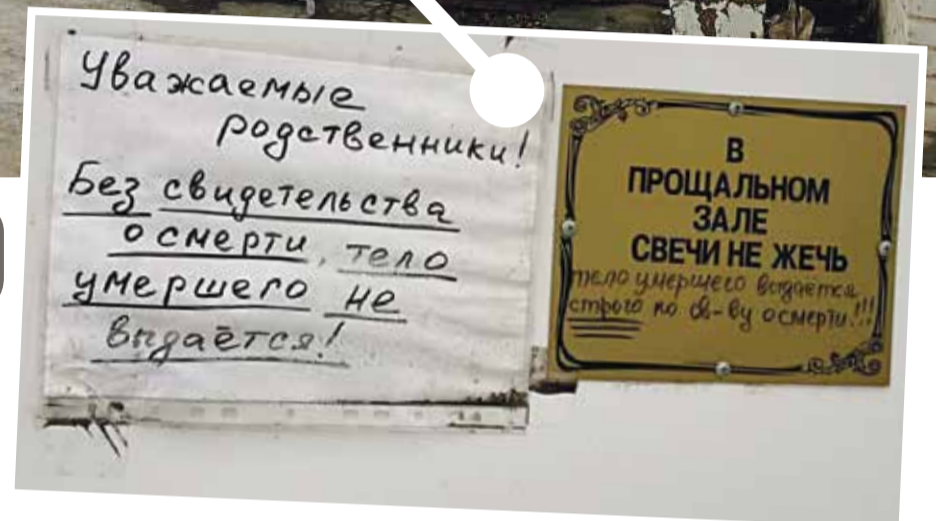 Уважаемые
родственники!
Без свидетельства
о смерти, тело
умершего не
выдаётся!
В
ПРОЩАЛЬНОМ
ЗАЛЕ
СВЕЧИ НЕ ЖЕЧЬ
тело умершего выдаётся
строго по св-ву о смерти!!!